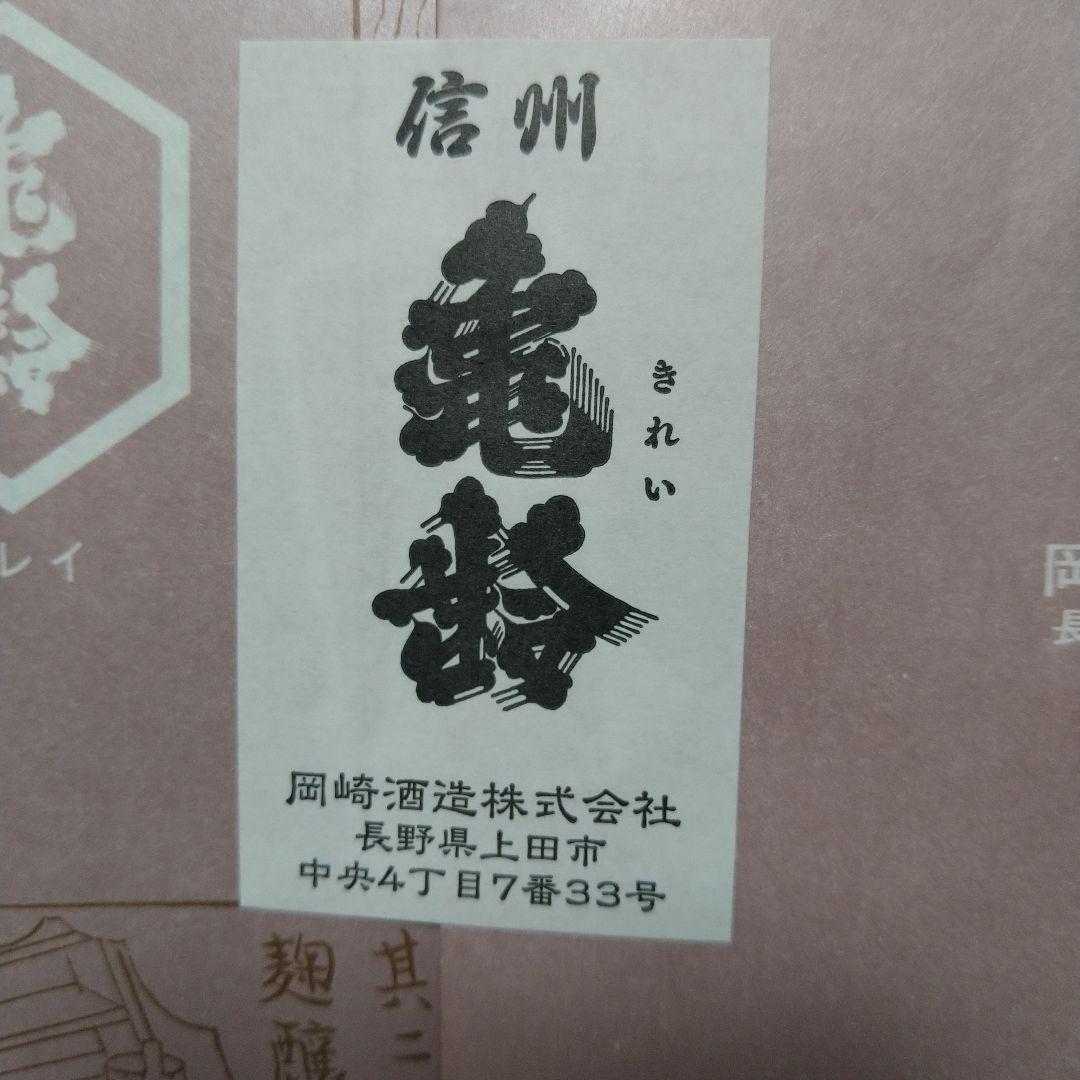 信州
亀齢
きれい
岡崎酒造株式会社
長野県上田市
中央4丁目7番33号
亀齢
レイ
岡
長
其二
麹醸